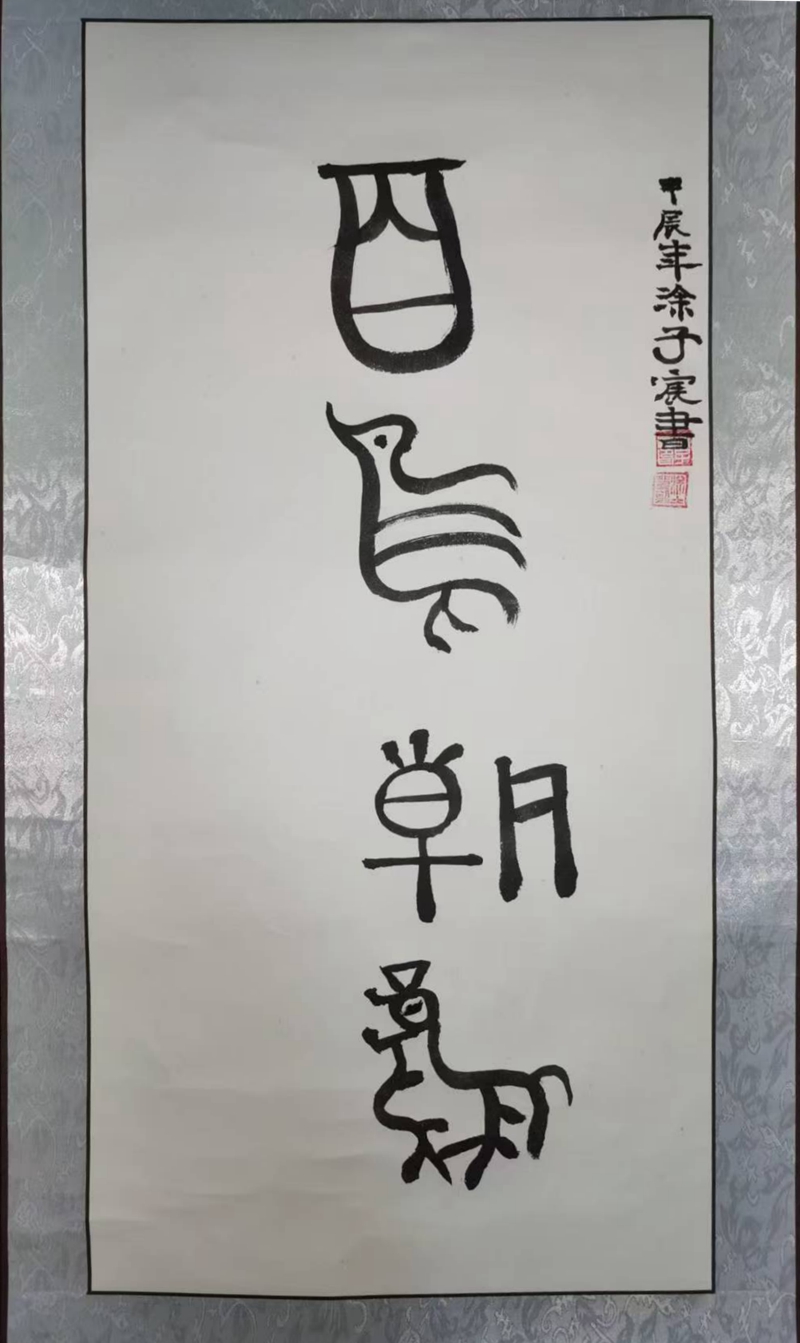 百鳥朝鳳
甲辰年涂子宸書